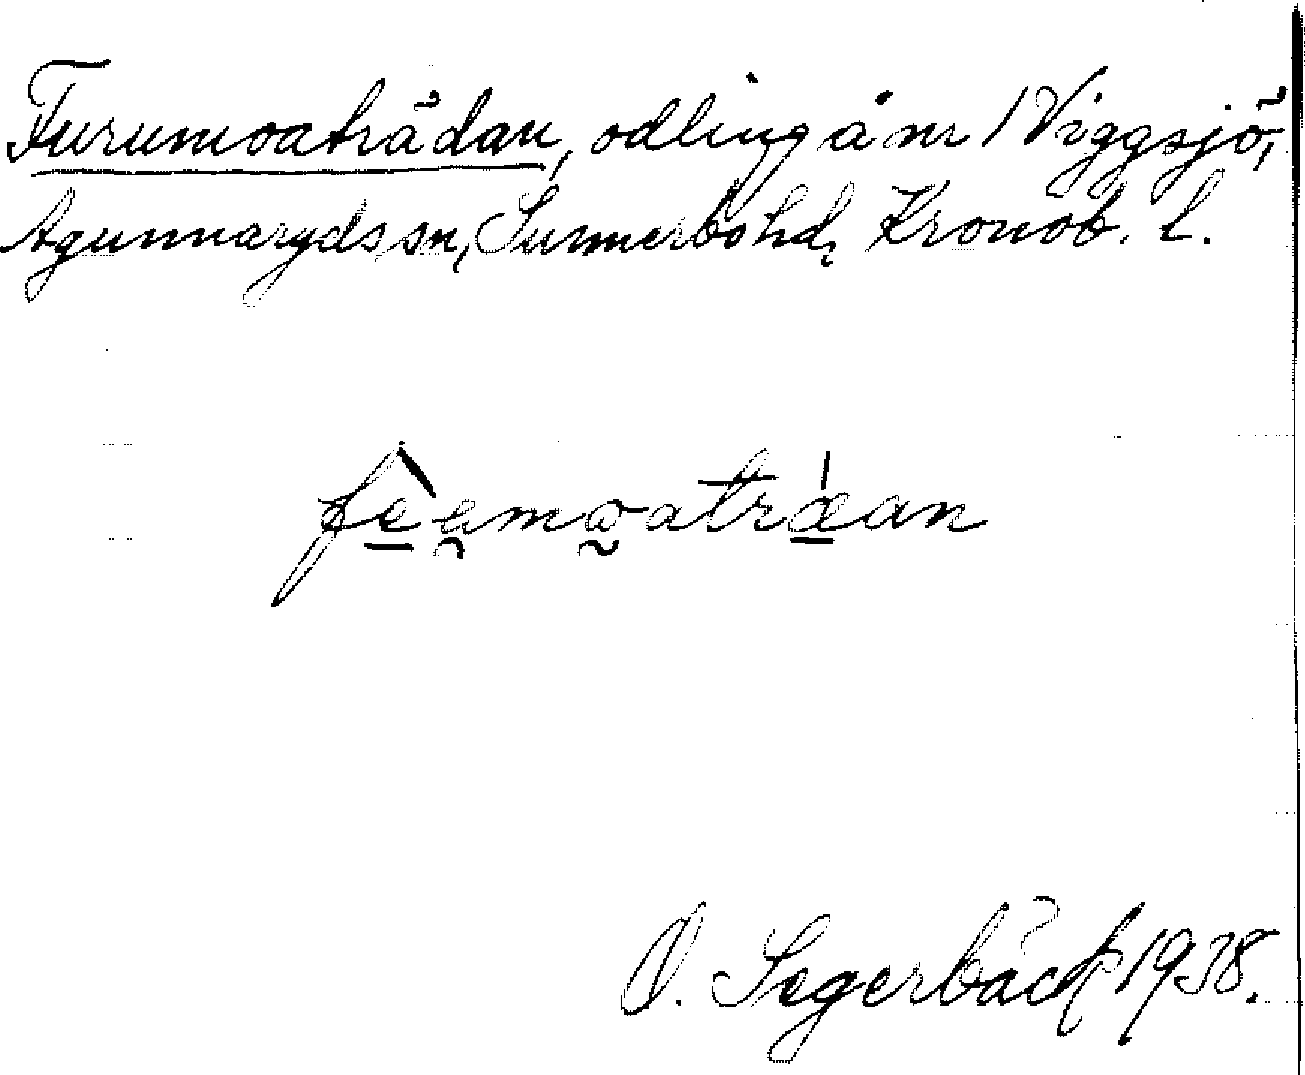 Furumoaträdan, odling å nr 1 Viggsjö,
Agunnarydssn, Sunnerbohd, Kronob. l.
O. Segerbäck 1938.